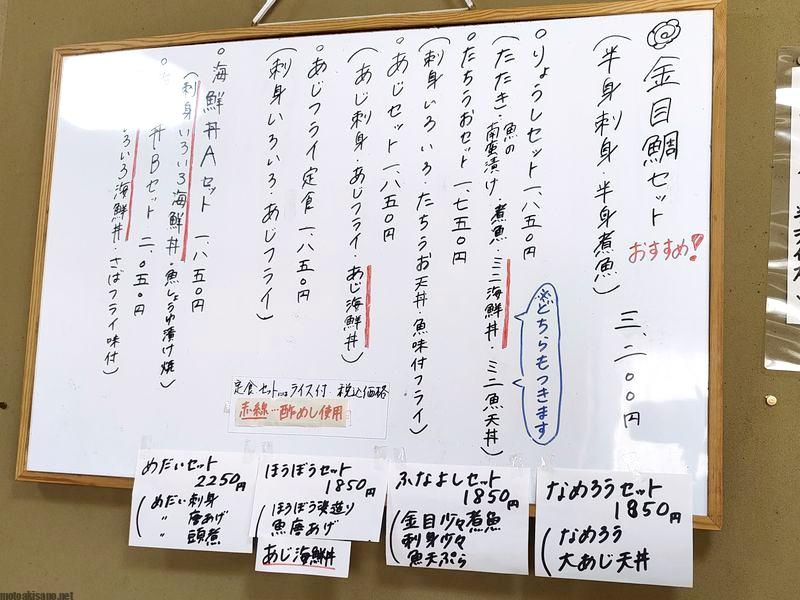 金目鯛セット 三、二〇〇円
おすすめ!
(半身刺身・半身煮魚)
○りょうしセット 一、八五〇円
(たたき・魚の南蛮漬け・煮魚・ミニ海鮮丼・ミニ魚天丼)
※どちらもつきます
○たちうおセット 一、七五〇円
(刺身いろいろ・たちうお天丼・魚味付フライ)
○あじセット 一、八五〇円
(あじ刺身・あじフライ・あじ海鮮丼)
○あじフライ定食 一、八五〇円
(刺身いろいろ・あじフライ)
○海鮮丼Aセット 一、八五〇円
(刺身いろいろ海鮮丼・魚しょうゆ漬け焼)
丼Bセット 二、〇五〇円
いろいろ海鮮丼・さばフライ味付)
定食セットにはライス付 税込価格
赤線…酢めし使用
めだいセット
2250円
(めだい刺身
〃 唐あげ
〃 頭煮
ほうぼうセット
1850円
(ほうぼう姿造り
魚唐あげ
あじ海鮮丼
ふなよしセット
1850円
(金目少々煮魚
刺身少々
魚天ぷら
なめろうセット
1850円
(なめろう
大あじ天丼
motoakisano.net